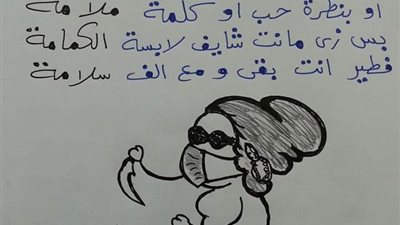 او بنظرة حب او كلمة ملامة
بس زى مانت شايف لابسة الكمامة
فطير انت بقى و مع الف سلامة